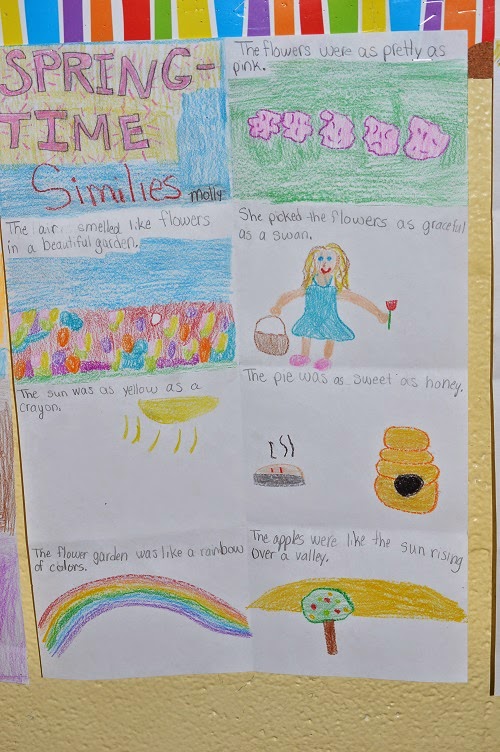 SPRING-
TIME
Similies
molly
The flowers were as pretty as
pink.
The air smelled like flowers
in a beautiful garden.
She picked the flowers as graceful
as a swan.
The sun was as yellow as a
crayon.
The pie was as sweet as honey.
The flower garden was like a rainbow
of colors.
The apples were like the sun rising
over a valley.